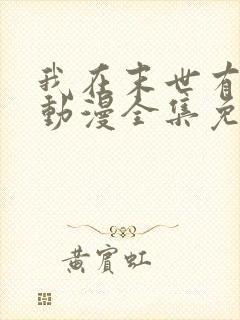 我在末世有
動漫全集免
黄賓虹